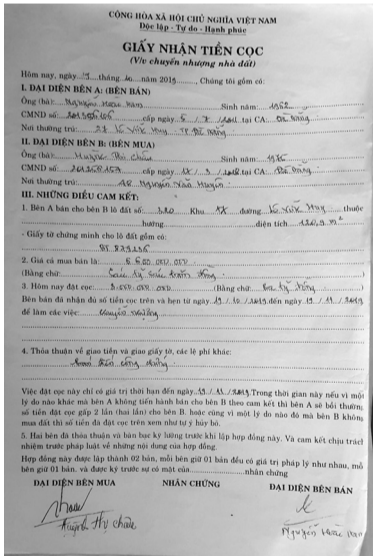 CỘNG HÒA XÃ HỘI CHỦ NGHĨA VIỆT NAM
Độc lập - Tự do - Hạnh phúc
GIẤY NHẬN TIỀN CỌC
(V/v chuyển nhượng nhà đất)
Hôm nay, ngày 19 tháng 10 năm 2019, Chúng tôi gồm có:
I. ĐẠI DIỆN BÊN A: (BÊN BÁN)
Ông (bà): Nguyễn Sinh năm: 1962
CMND số: cấp ngày 5 / 7 / 2011 tại CA: Đà Nẵng
Nơi thường trú: 27 Lê Vĩnh Huy TP Đà Nẵng
II. ĐẠI DIỆN BÊN B: (BÊN MUA)
Ông (bà): Huỳnh Thị Châu Sinh năm: 1976
CMND số: cấp ngày tại CA: Đà Nẵng
Nơi thường trú: Nguyễn Văn Huyên
III. NHỮNG ĐIỀU CAM KẾT:
1. Bên A bán cho bên B lô đất số: 320 Khu đường Lê Vĩnh Huy thuộc
hướng diện tích m²
- Giấy tờ chứng minh cho lô đất gồm có:
2. Giá cả mua bán là: 6.600.000.000
(Bằng chữ: Sáu tỷ sáu trăm đồng)
3. Hôm nay đặt cọc: 3.000.000.000 (Bằng chữ: Ba tỷ đồng)
Bên bán đã nhận đủ số tiền cọc trên và hẹn từ ngày 19 / 10 / 2019 đến ngày 19 / 11 / 2019
để làm các việc: chuyển nhượng
4. Thỏa thuận về giao tiền và giao giấy tờ, các lệ phí khác:
công chứng
Việc đặt cọc này chỉ có giá trị thời hạn đến ngày 19 / 11 / 2019 Trong thời gian này nếu vì một
lý do nào khác mà bên A không tiến hành bán cho bên B theo cam kết thì bên A sẽ bồi thường
số tiền đặt cọc gấp 2 lần (hai lần) cho bên B. hoặc cũng vì một lý do nào đó mà bên B không
mua đất thì số tiền đã đặt cọc trên xem như tự ý hủy bỏ.
5. Hai bên đã thỏa thuận và bàn bạc kỹ lưỡng trước khi lập hợp đồng này. Và cam kết chịu trách
nhiệm trước pháp luật về những nội dung của hợp đồng.
Hợp đồng này được lập thành 02 bản, mỗi bên giữ 01 bản đều có giá trị pháp lý như nhau, mỗi
bên giữ 01 bản. và được ký trước sự có mặt của nhân chứng
ĐẠI DIỆN BÊN MUA NHÂN CHỨNG ĐẠI DIỆN BÊN BÁN
Huỳnh Thị Châu Nguyễn